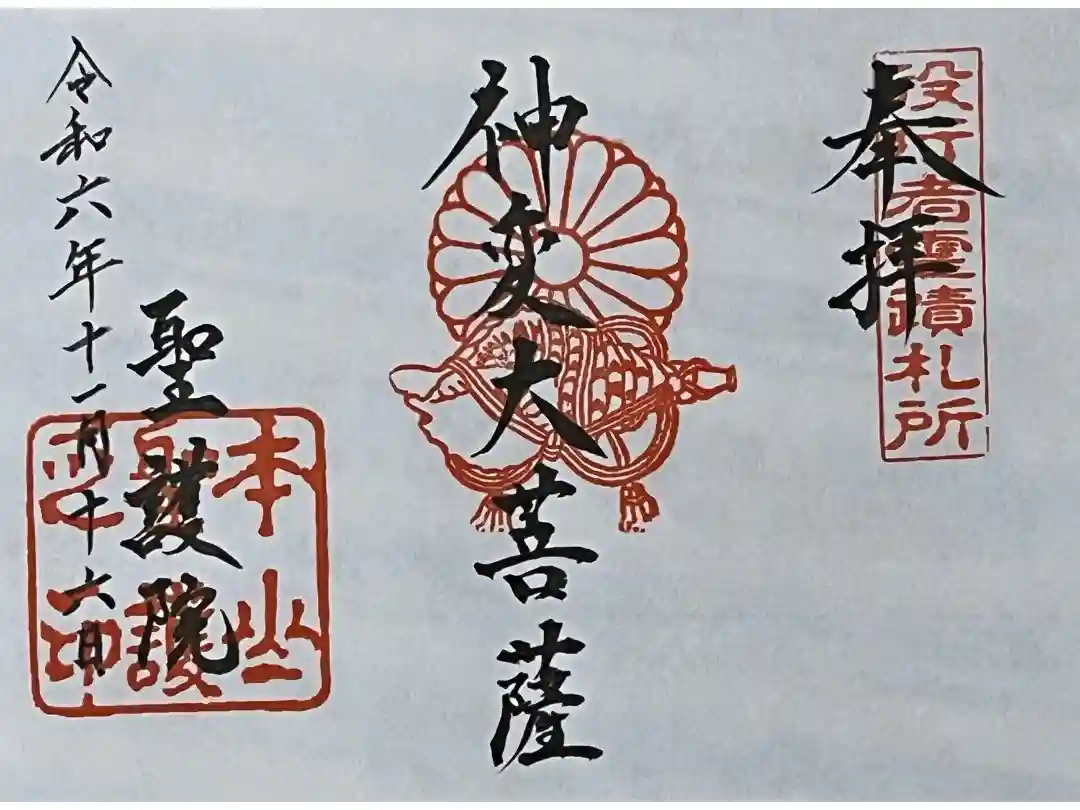 奉拝
役行者霊蹟札所
神変大菩薩
聖護院
本山
聖護
院印
令和六年十一月十六日